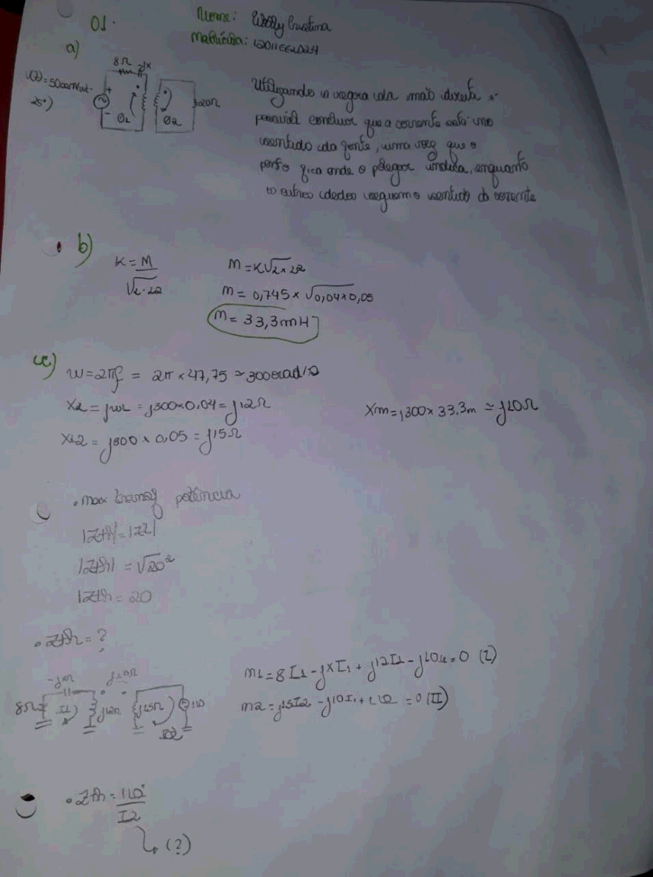 01.
Nome: Cristina
Matrícula:
a)
8Ω -jx
v(t)=500cos(
25°)
20Ω
Utilizando a regra da mão direita é
possível concluir que a corrente está no
sentido da fonte, uma vez que o
ponto fica onde o polegar indica, enquanto
os outros dedos seguem o sentido da corrente
b)
K = M
M = K√
M = 0,745 x √0,04x0,05
M = 33,3mH
c)
W = 2πf = 2π x 47,75 ≃ 300rad/s
= jωL = j300x0,04 = j12Ω
Xm = j300 x 33.3m ≃ j10Ω
XL2 = j300 x 0,05 = j15Ω
• max transf potência
|Zth| = |ZL|
|Zth| = √20²
|Zth = 20
• Zth = ?
-jxΩ j10Ω
8Ω I1 j12Ω j15Ω
m1 = 8I1 - jxI1 + j12I1 - j10 = 0 (I)
m2 = j15I2 - j10I1 + = 0 (II)
• Zth =
I2
(?)